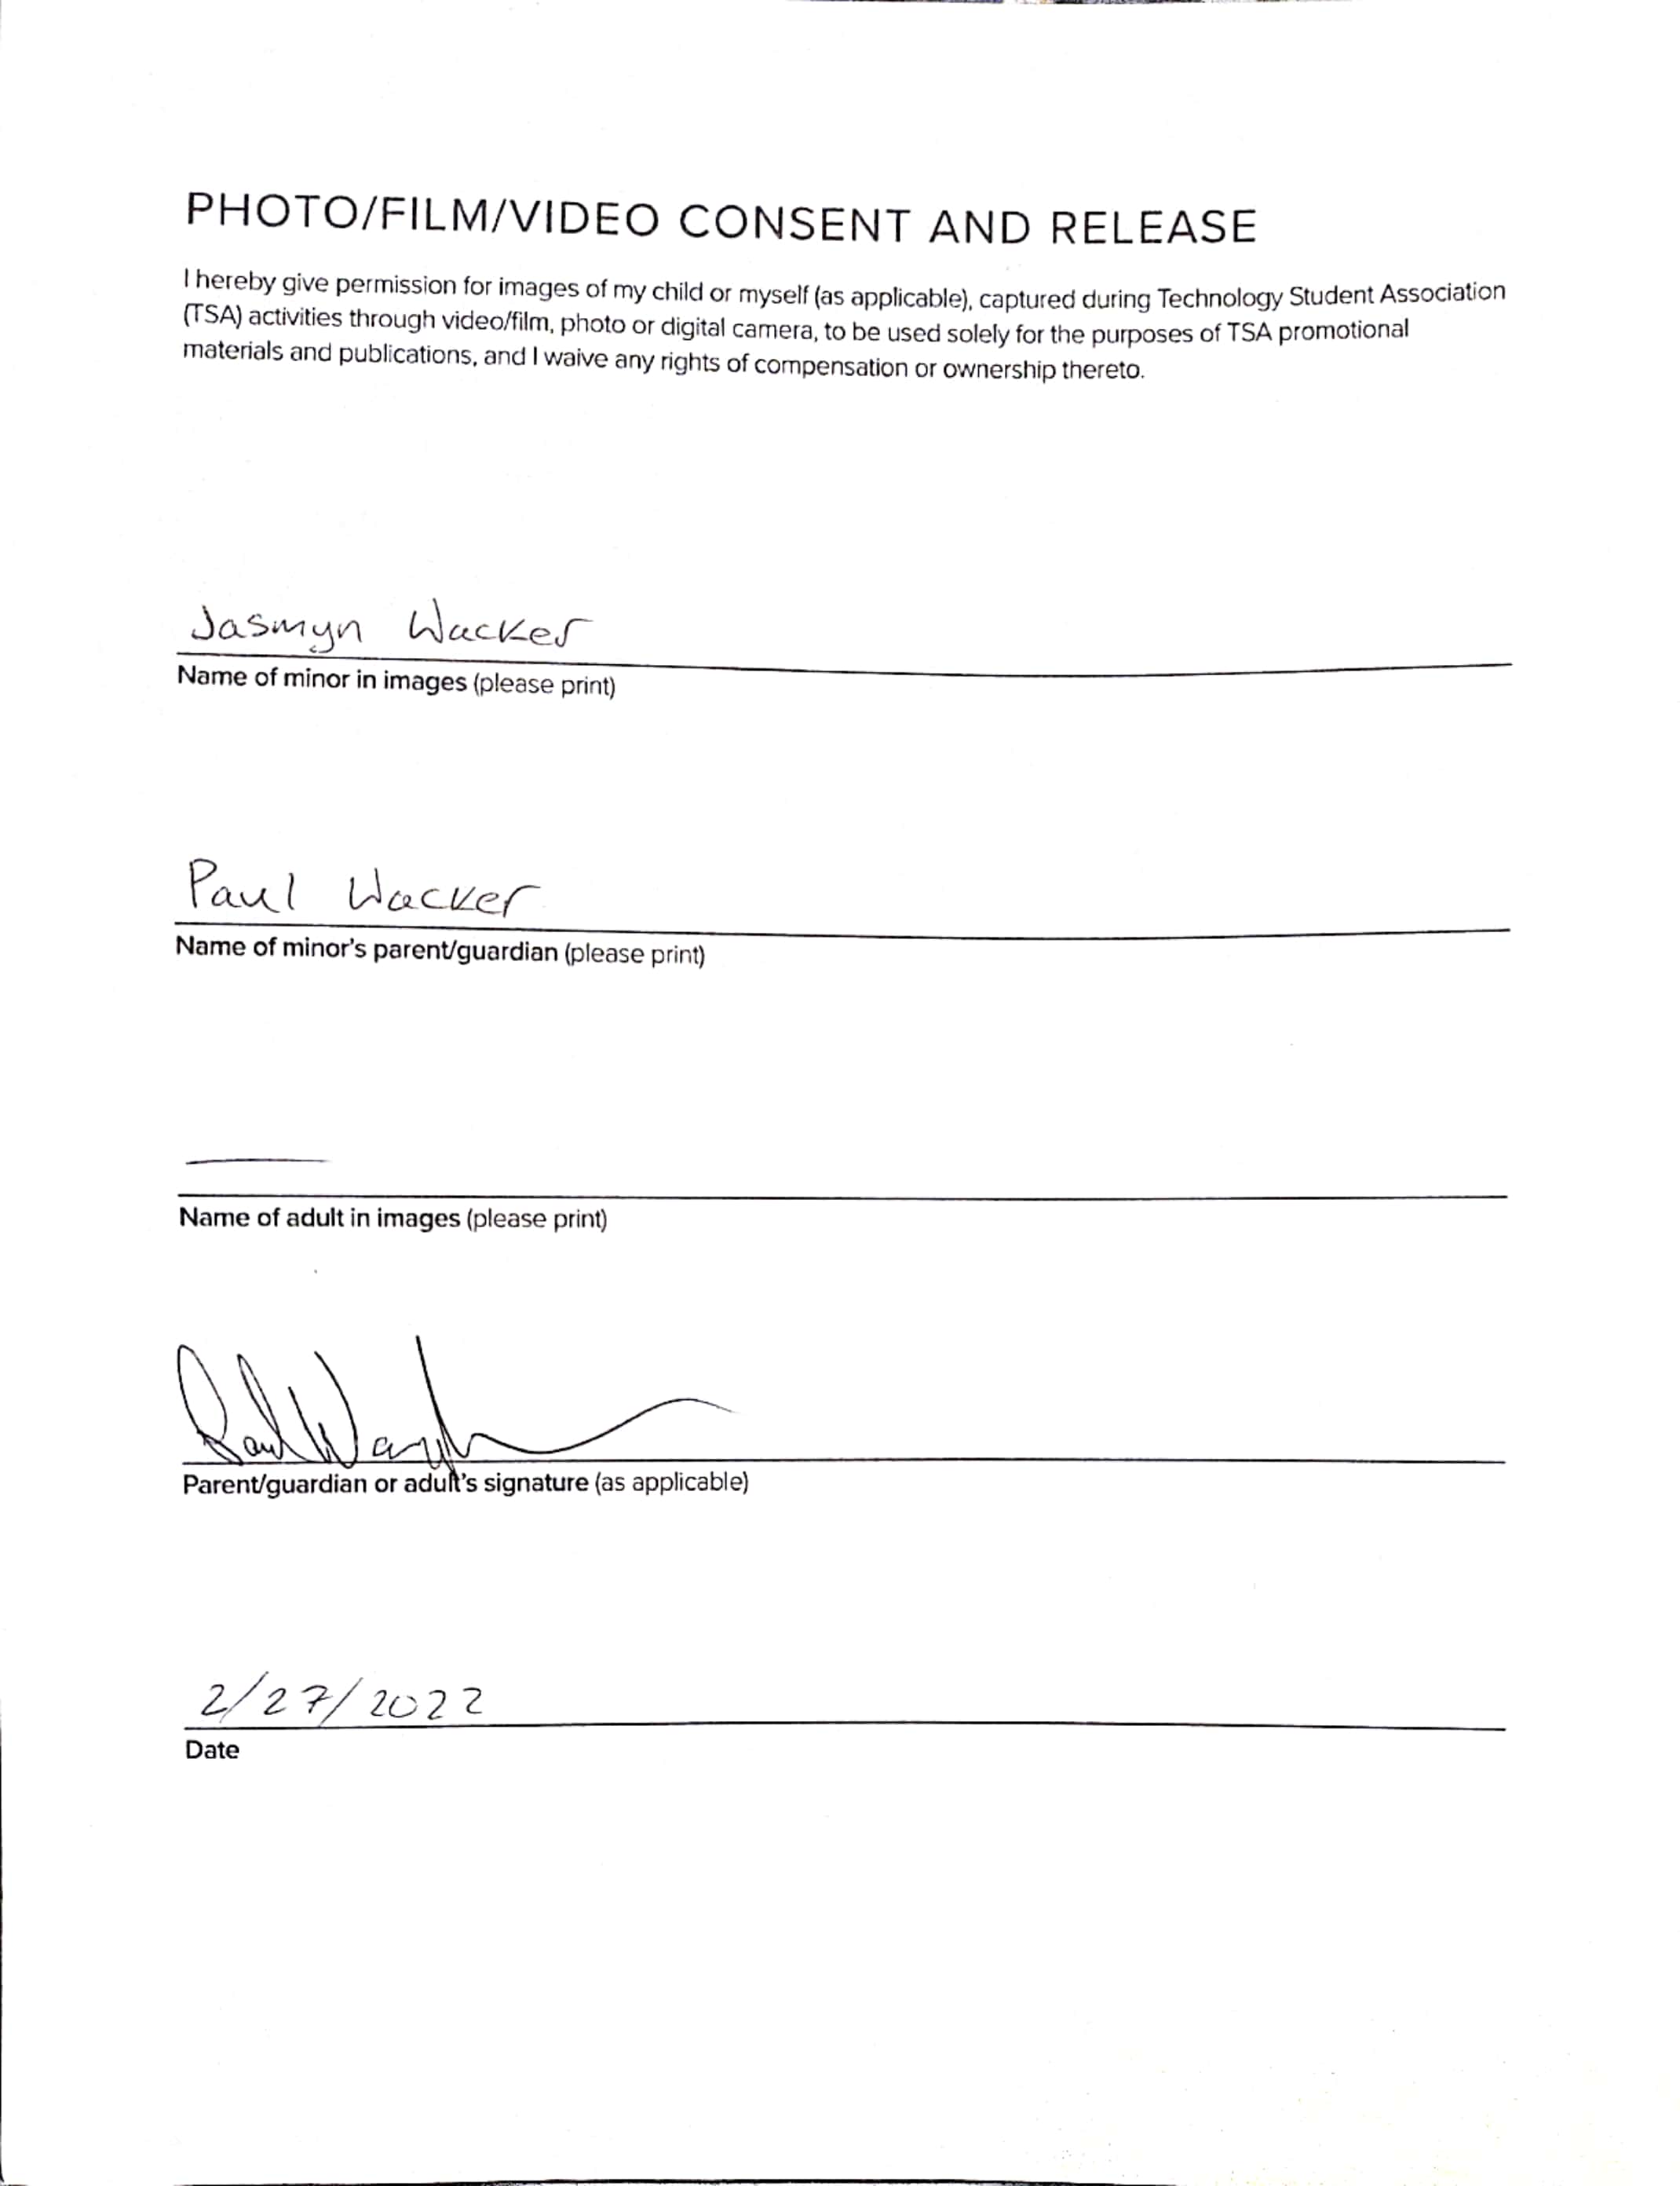 PHOTO/FILM/VIDEO CONSENT AND RELEASE
I hereby give permission for images of my child or myself (as applicable), captured during Technology Student Association
(TSA) activities through video/film, photo or digital camera, to be used solely for the purposes of TSA promotional
materials and publications, and I waive any rights of compensation or ownership thereto.
Jasmyn Wacker
Name of minor in images (please print)
Paul Wacker
Name of minor's parent/guardian (please print)
Name of adult in images (please print)
Paul Wacker
Parent/guardian or adult's signature (as applicable)
2/27/2022
Date